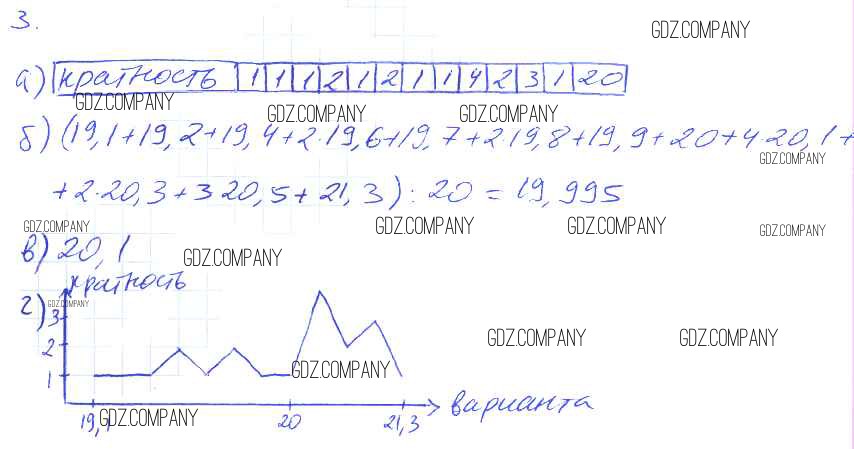 3.
GDZ.COMPANY
а) кратность 1 1 1 2 1 2 1 1 4 2 3 1 20
GDZ.COMPANY
GDZ.COMPANY GDZ.COMPANY
б) (19,1+19,2+19,4+2·19,6+19,7+2·19,8+19,9+20+4·20,1+
GDZ.COMPANY
+2·20,3+3·20,5+21,3):20=19,995
GDZ.COMPANY GDZ.COMPANY GDZ.COMPANY GDZ.COMPANY
в) 20,1
GDZ.COMPANY
кратность
г)
GDZ.COMPANY
3
GDZ.COMPANY GDZ.COMPANY
2
GDZ.COMPANY
1
варианта
19,1 20 21,3
GDZ.COMPANY